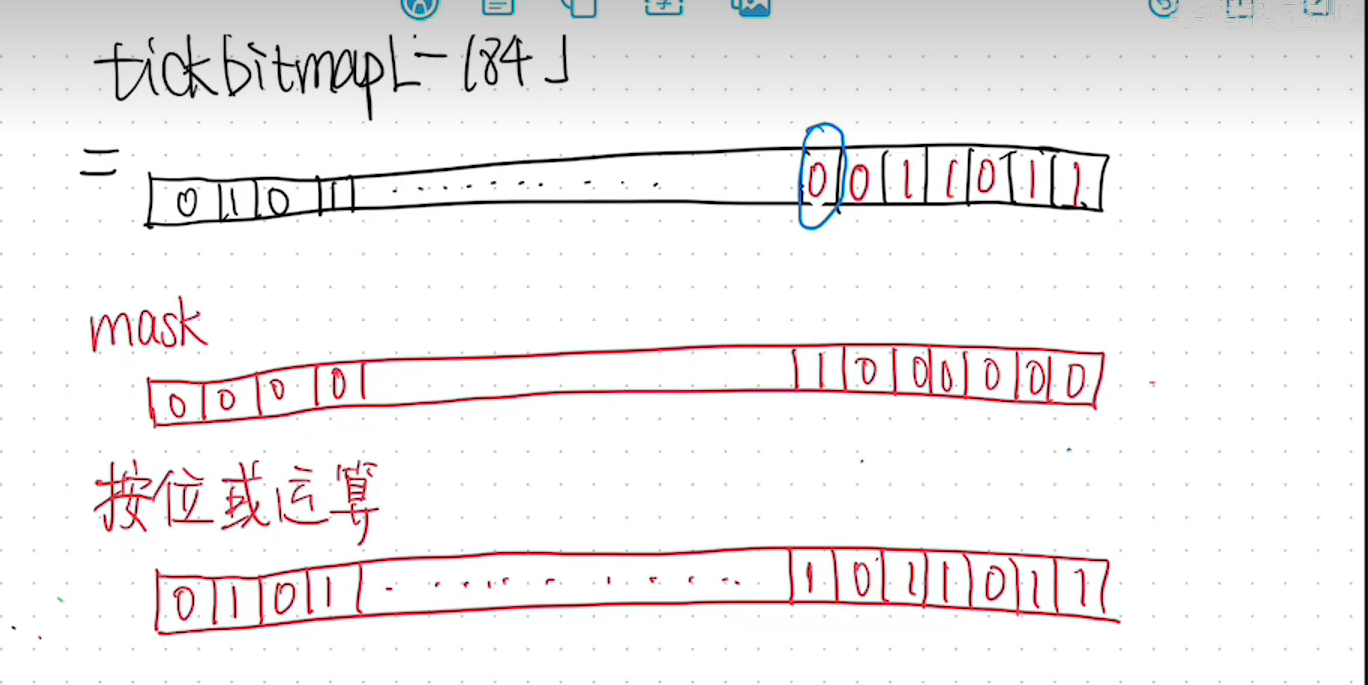 tickbitmap[-184]
=
0 1 0 1 ............ 0 0 1 1 0 1 1
mask
0 0 0 0 1 0 0 0 0 0 0
按位或运算
0 1 0 1 ............ 1 0 1 1 0 1 1